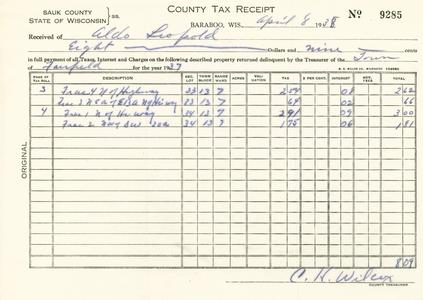 SAUK COUNTY
STATE OF WISCONSIN } ss.
COUNTY TAX RECEIPT
BARABOO, WIS., April 8 1938
No 9285
Received of Aldo Leopold
Eight Dollars and nine cents
in full payment of all Taxes, Interest and Charges on the following described property returned delinquent by the Treasurer of the Town
of Fairfield for the year 1937
PAGE OF TAX ROLL DESCRIPTION SEC. LOT TOWN BLOCK RANGE WARD ACRES VALUATION TAX 2 PER CENT. INTEREST TOTAL
3 Frac 4 N of Highway 33 13 7 254 08 262
Frac N of Highway 33 13 7 64 02 66
4 Frac 1 N of Hi way 34 13 7 291 09 300
Frac 2 34 13 7 175 06 181
ORIGINAL
809
C. H. Wilcox
COUNTY TREASURER